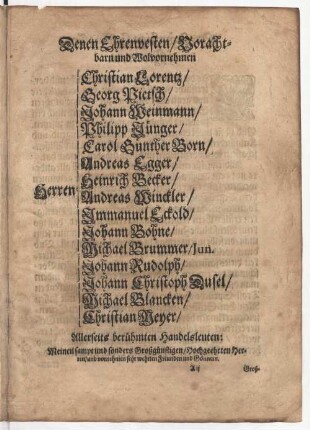 Denen Ehrenvesten/Voracht-
barn und Wolvornehmen
Christian Lorentz/
Georg Pietsch/
Johann Weinmann/
Philipp Jünger/
Carol Gunther Born/
Andreas Egger/
Heinrich Becker/
Herren Andreas Winckler/
Immanuel Eckold/
Johann Bohne/
Michael Brummer/Jun.
Johann Rudolph/
Johann Christoph Dufel/
Michael Blancken/
Christian Meyer/
Allerseits berühmten Handelsleuten:
Meinen sampt und sonders Großgünstigen/Hochgeehrten Her-
ren/und vornehmen sehr wehrten Freunden und Gönnern.
A ij Groß-